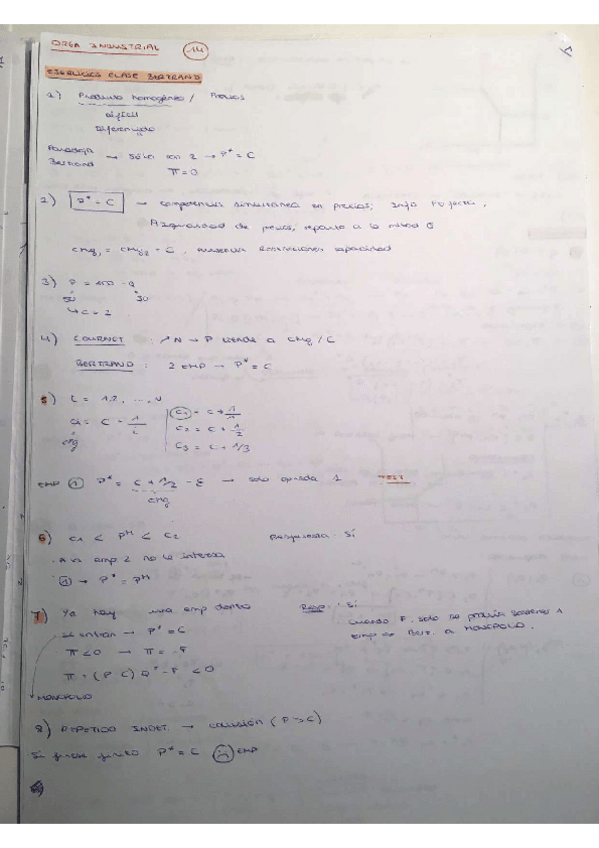 ORGA INDUSTRIAL 14
EJERCICIOS CLASE BERTRAND
1) Producto homogéneo / Precios
difícil
diferenciado
Paradoja Bertrand → Sólo con 2 → P* = C
π = 0
2) P* = C → competencia simultánea en precios; Info
de precios, reparto a la mitad Q
CMg₁ = CMg₂ = C, ausencia restricciones capacidad
3) P = 100 - Q
50 50
↳ C = 2
4) COURNOT : ↗ N → P tiende a CMg / C
BERTRAND : 2 EMP → P* = C
5) i = 1, 2, ..., N
CMg
C₂ = C + 1/2
C₃ = C + 1/3
EMP ① P* = C + 1/2 - ε → solo queda 1 TEST
CMg
6) C₁ < Pᴹ < C₂ Respuesta: Sí
A la emp 2 no le interesa
① → P* = Pᴹ
7) Ya hay una emp dentro Resp: Sí
Si entran → P* = C
π < 0 → π = -F
π = (P - C) Q* - F < 0
MONOPOLIO
8) REPETIDO INDEF. → COLUSIÓN (P > C)
Si fuese finito P* = C ☹ EMP